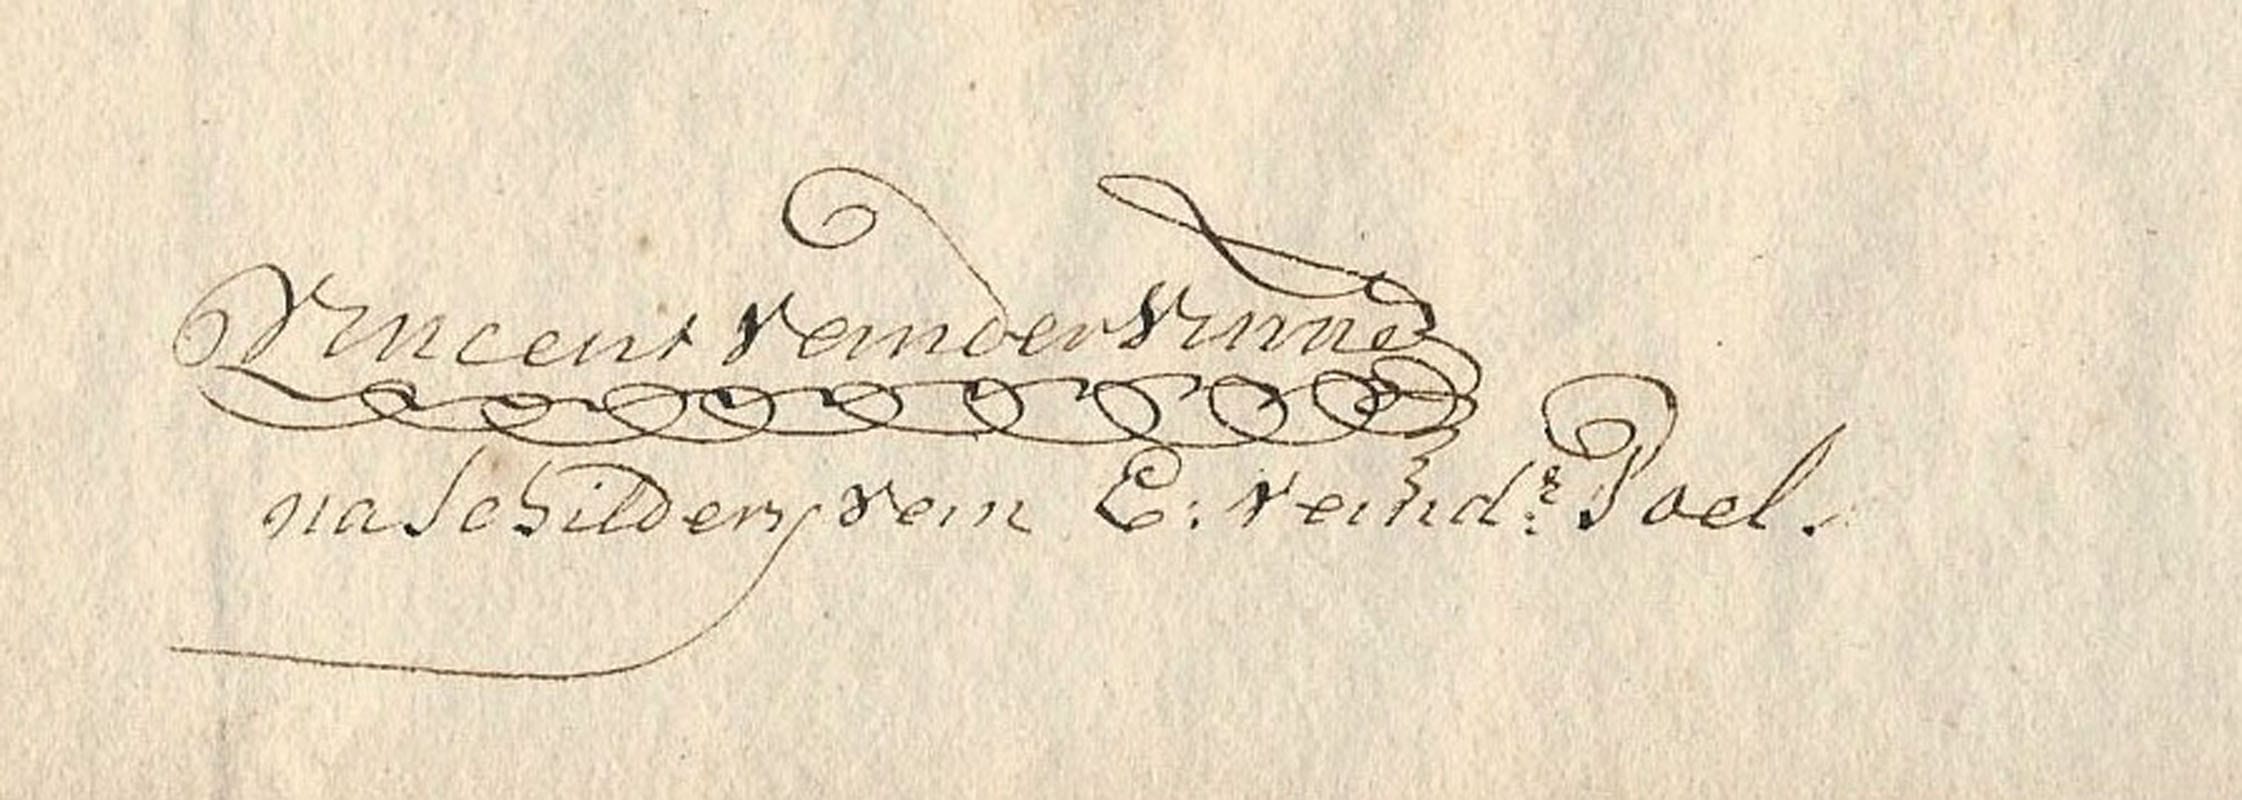 Vincent vander Vinne
na Schildery van E: vand.r Poel.